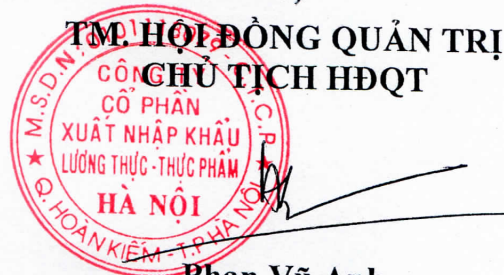 TM. HỘI ĐỒNG QUẢN TRỊ
CHỦ TỊCH HĐQT
CÔNG TY
CỔ PHẦN
XUẤT NHẬP KHẨU
LƯƠNG THỰC - THỰC PHẨM
HÀ NỘI
M.S.D.N:
C.T.C.P
Q. HOÀN KIẾM - T.P HÀ NỘI
Phan Vũ Anh